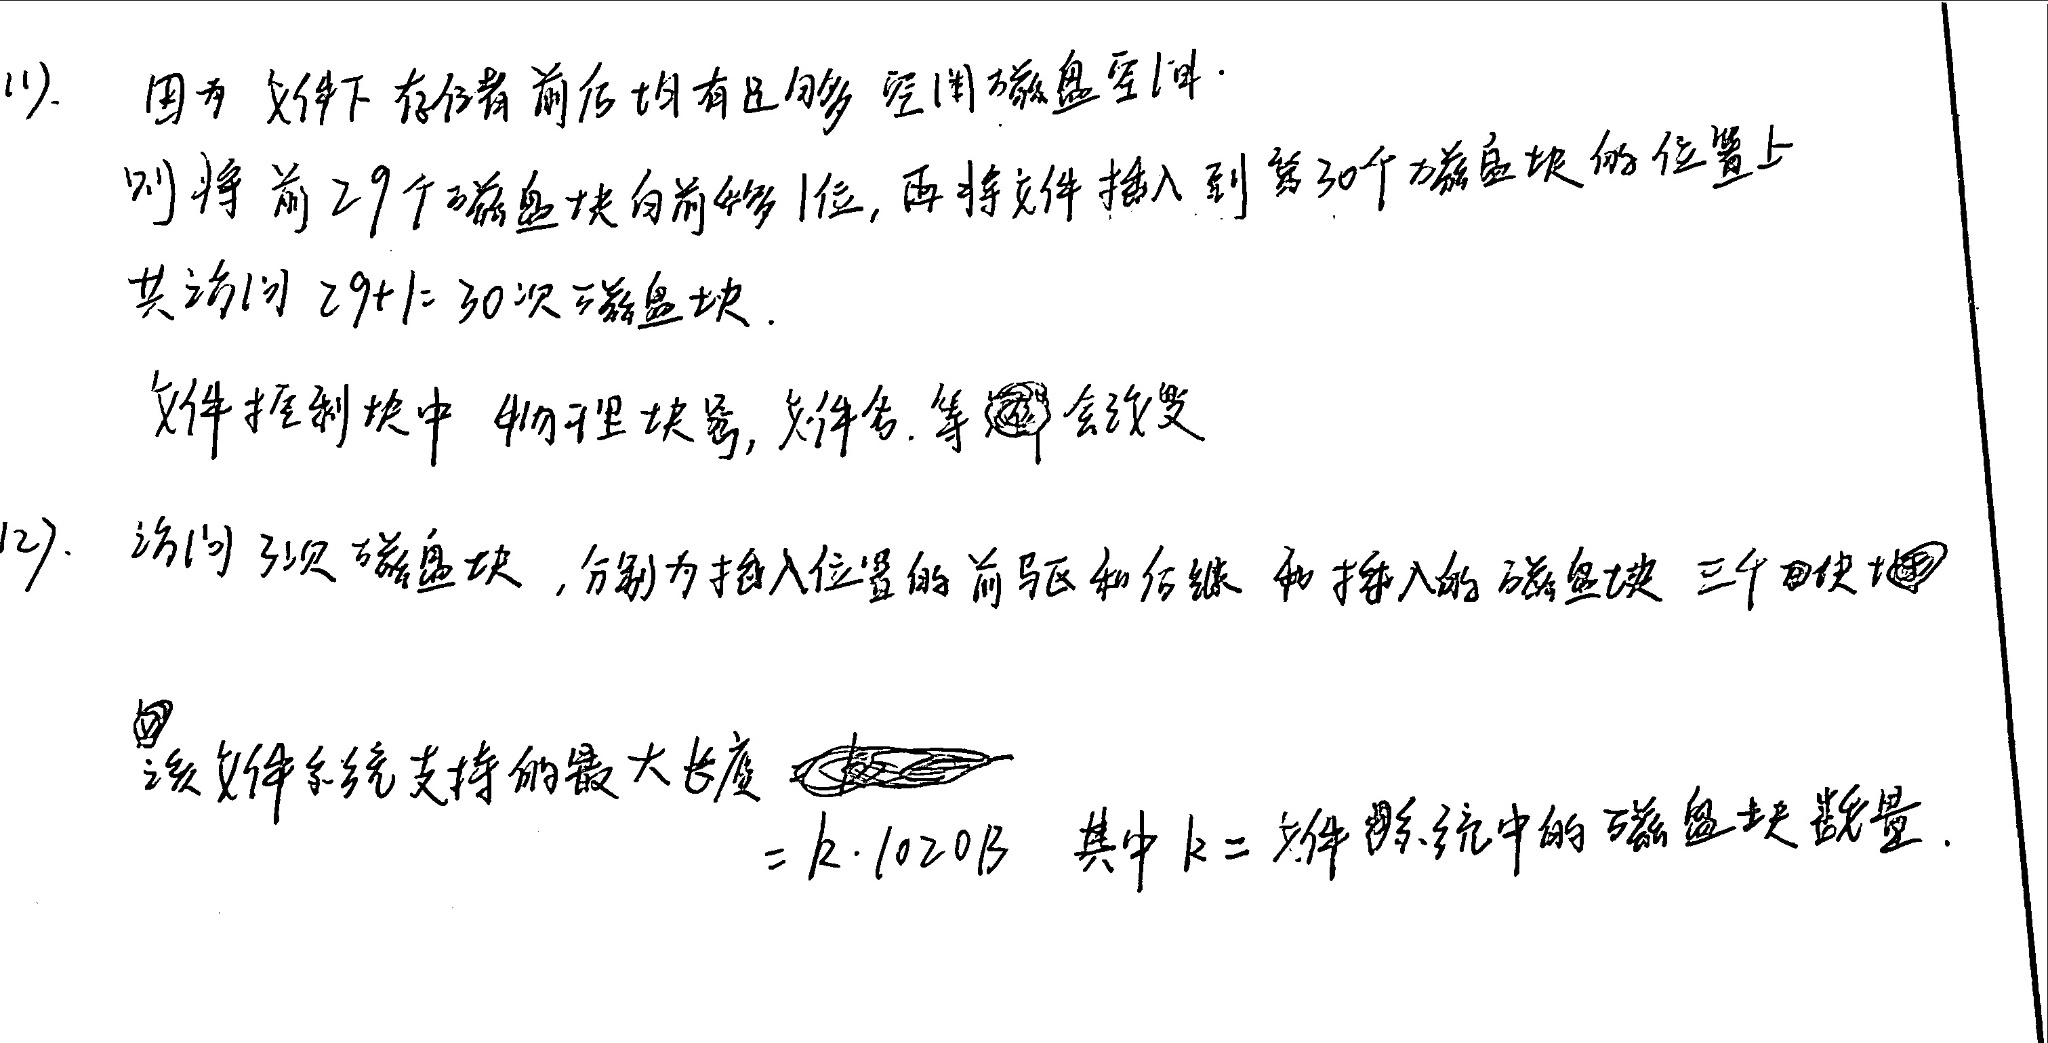 (1). 因为 文件下 存储着 前后均有足够 空闲磁盘空间.
则将 前29个磁盘块向前移1位, 再将文件插入到第30个磁盘块的位置上
共访问 29+1=30次磁盘块.
文件控制块中 物理块号, 文件名. 等 会改变
(2). 访问 3次 磁盘块, 分别为插入位置的前驱和后继 和 插入的磁盘块 三个
该文件系统支持的最大长度
= k·1020B 其中 k = 文件系统中的磁盘块数量.